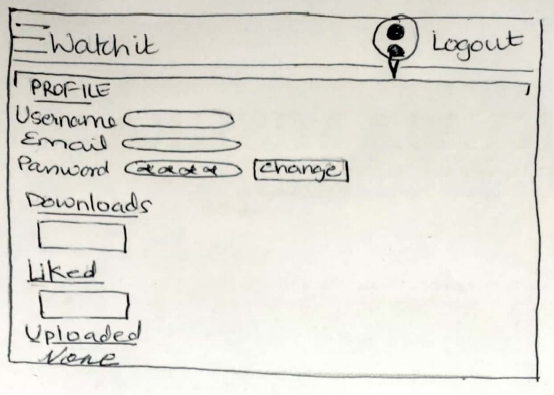 Watchit Logout
PROFILE
Username
Email
Password **** change
Downloads
Liked
Uploaded
None